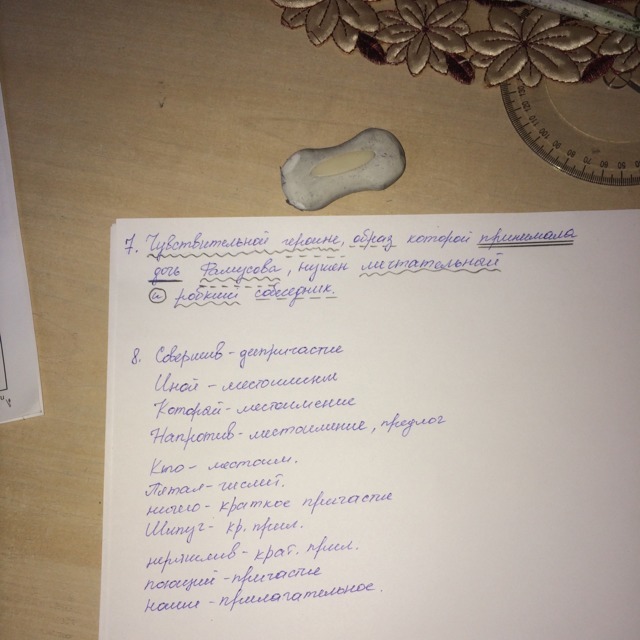 7. Чувствительной героине, образ которой принимала
дочь Фамусова, нужен мечтательной
и робкий собеседник.
8. Совершив - деепричастие
Иной - местоимение
Которай - местоимение
Напротив - местоимение, предлог
Кто - местоим.
Пятая - числит.
ничего - краткое причастие
Шипуч - кр. прил.
неряшлив - крат. прил.
поющий - причастие
наши - прилагательное.